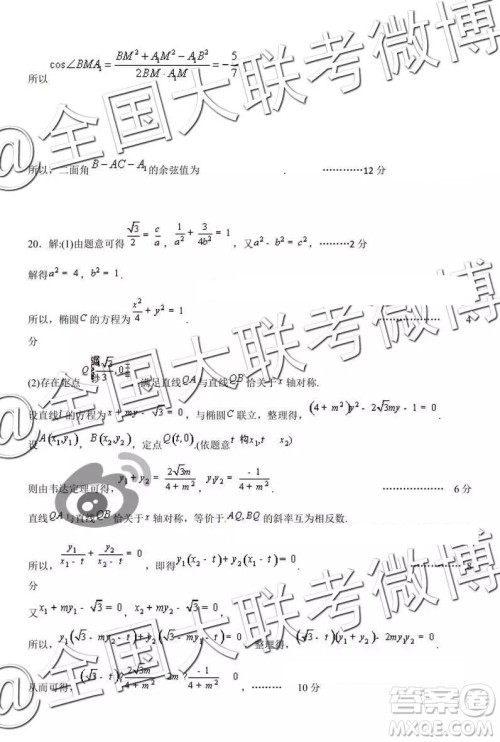 所以 cos∠BMA₁ = (BM² + A₁M² − A₁B²)/(2BM · A₁M) = −5/7
所以,二面角 B − AC − A₁ 的余弦值为 . …………12 分
20.解:(1)由题意可得 √3/2 = c/a , 1/a² + 3/(4b²) = 1 ,又 a² − b² = c² , ………2 分
解得 a² = 4 , b² = 1 .
所以,椭圆 C 的方程为 x²/4 + y² = 1 .
分
(2)存在定点 Q , 满足直线 QA 与 QB 恰关于 x 轴对称.
设直线 l 的方程为 x + my − √3 = 0 ,与椭圆 C 联立,整理得, (4 + m²)y² − 2√3my − 1 = 0 .
设 A(x₁,y₁) , B(x₂,y₂) ,定点 Q(t,0) .(依题意 t 构x₁,t x₂)
则由韦达定理可得, y₁ + y₂ = 2√3m/(4 + m²) , y₁y₂ = −1/(4 + m²) . 6 分
直线 QA 与直线 QB 恰关于 x 轴对称,等价于 AQ,BQ 的斜率互为相反数.
所以, y₁/(x₁ − t) + y₂/(x₂ − t) = 0 ,即得 y₁(x₂ − t) + y₂(x₁ − t) = 0 . 8
分
又 x₁ + my₁ − √3 = 0 , x₂ + my₂ − √3 = 0 ,
所以, y₁(√3 − my₂ − t) + y₂(√3 − my₁ − t) = 0 , 整理得, (√3 − t)(y₁ + y₂) − 2my₁y₂ = 0 .
从而可得, (√3 − t)? 2√3m/(4 + m²) 2m? −1/(4 + m²) = 0 , ……… 10 分
@全国大联考微博
@全国大联考微博
@全国大联考微博
答案圈
MXQE.COM